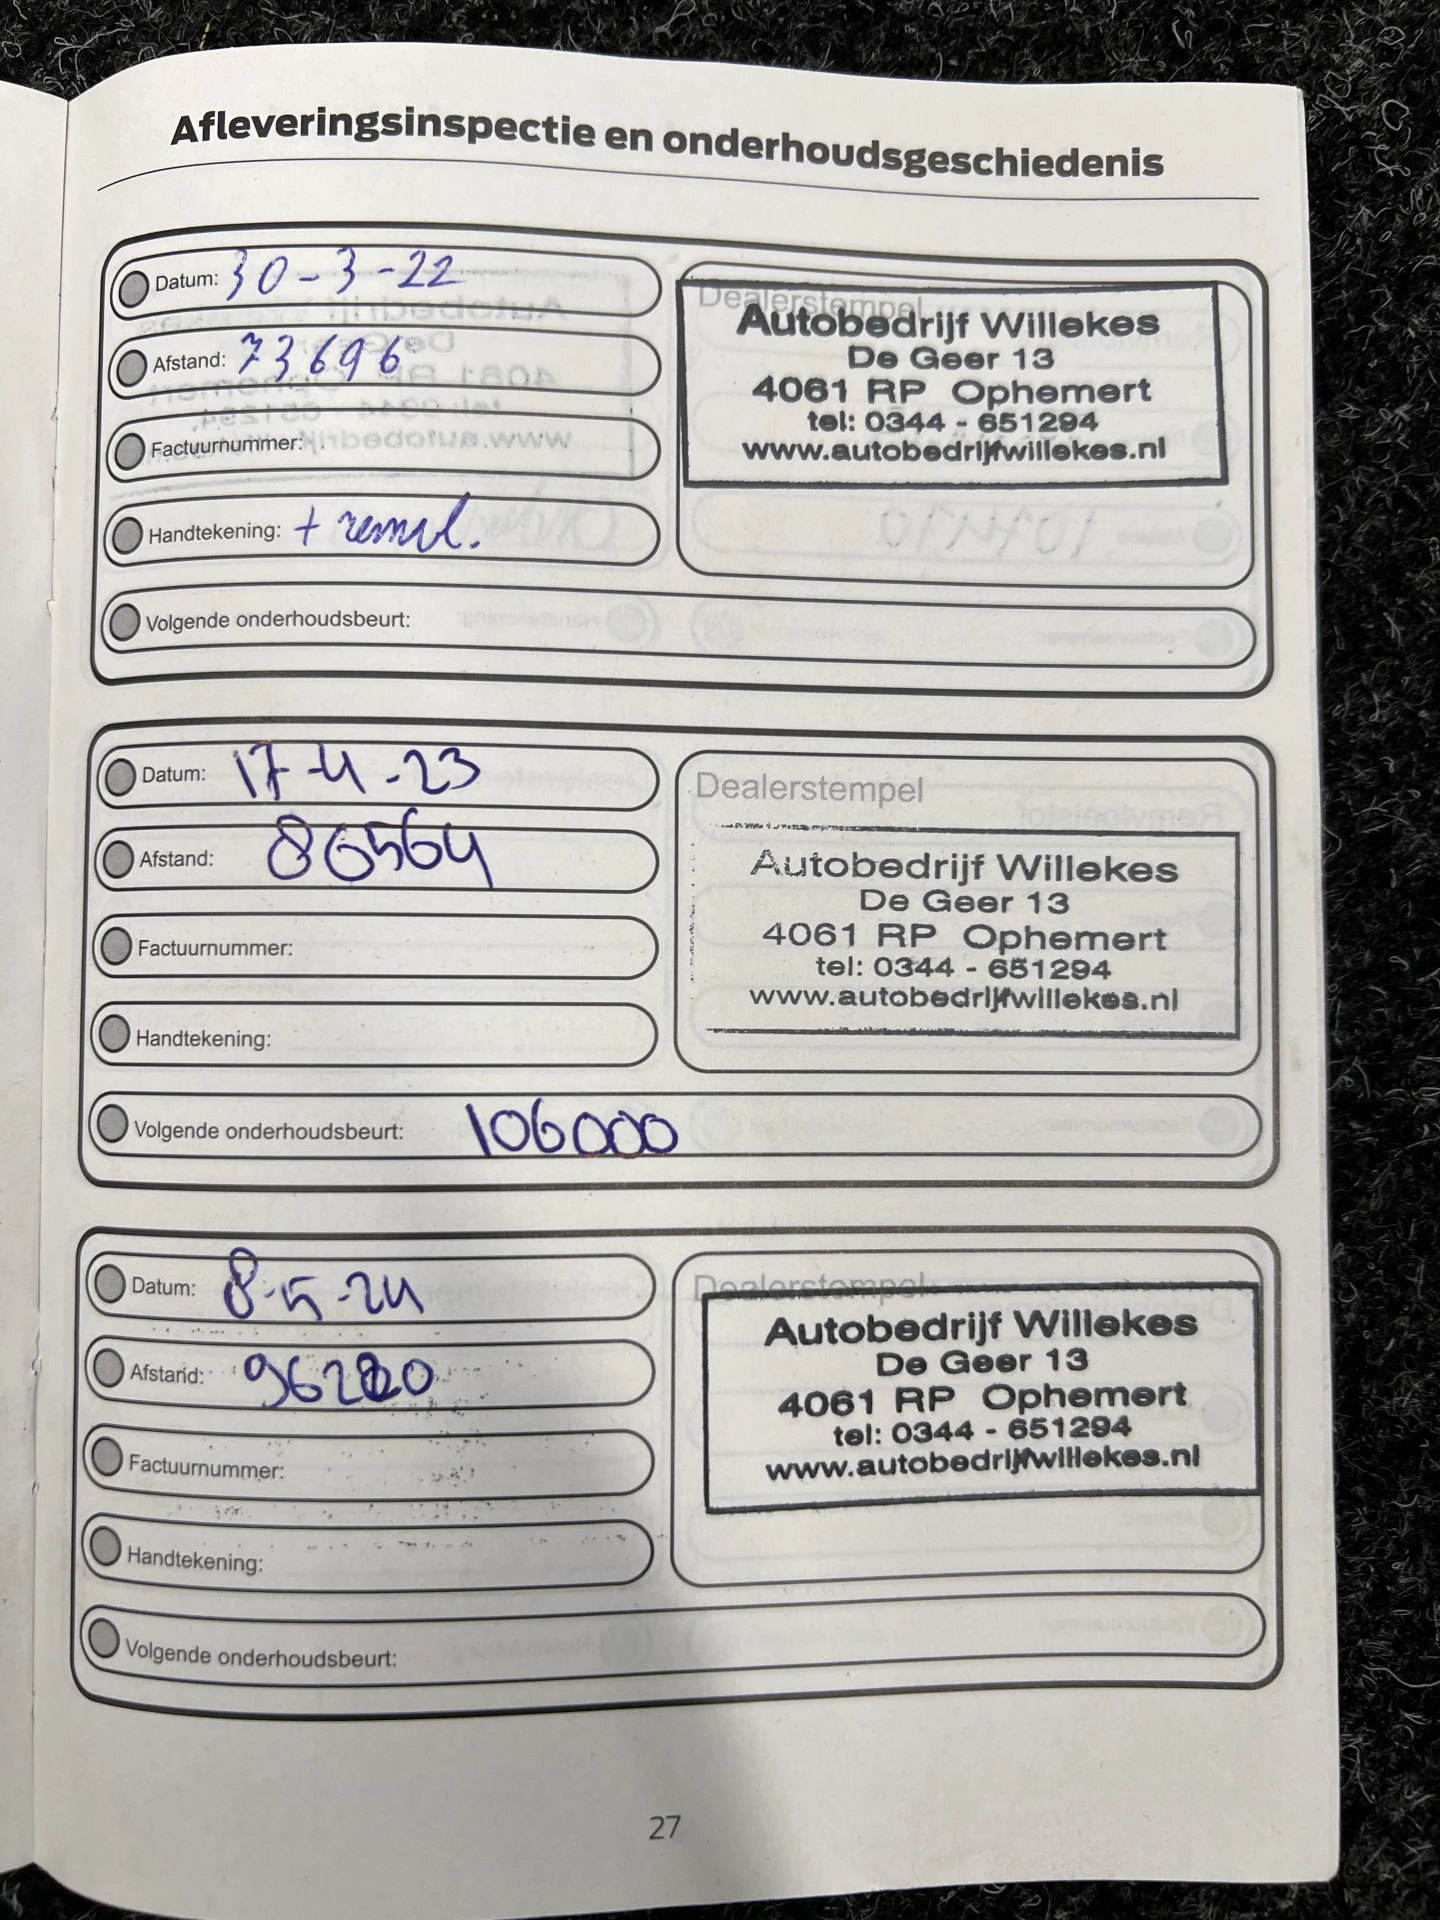 Afleveringsinspectie en onderhoudsgeschiedenis
Datum: 30-3-22
Afstand: 73696
Factuurnummer:
Handtekening: + remvl.
Volgende onderhoudsbeurt:
Dealerstempel
Autobedrijf Willekes
De Geer 13
4061 RP Ophemert
tel: 0344 - 651294
www.autobedrijfwillekes.nl
Datum: 17-4-23
Afstand: 86564
Factuurnummer:
Handtekening:
Volgende onderhoudsbeurt: 106000
Dealerstempel
Autobedrijf Willekes
De Geer 13
4061 RP Ophemert
tel: 0344 - 651294
www.autobedrijfwillekes.nl
Datum: 8-5-24
Afstand:
Factuurnummer:
Handtekening:
Volgende onderhoudsbeurt:
Dealerstempel
Autobedrijf Willekes
De Geer 13
4061 RP Ophemert
tel: 0344 - 651294
www.autobedrijfwillekes.nl
27